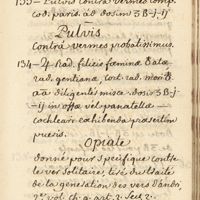 133 — Pulvis contra vermes comp.
cod. paris. ad dosim ʒ B - j - ij
Pulvis
Contra vermes probatissimus.
134 — ♃. Rad. filicis foeminae
rad. gentianae, cort. rad. mori
aa diligenter misce. dosis ʒ B - j -
ij in offa vel panatella
cochleari exhibenda praesertim
pueris.
Opiate
donné pour specifique contre
le ver solitaire, tiré du traité
de la generation des vers d'andri,
2.e vol. ch. 9. art. 2. sect. 2.